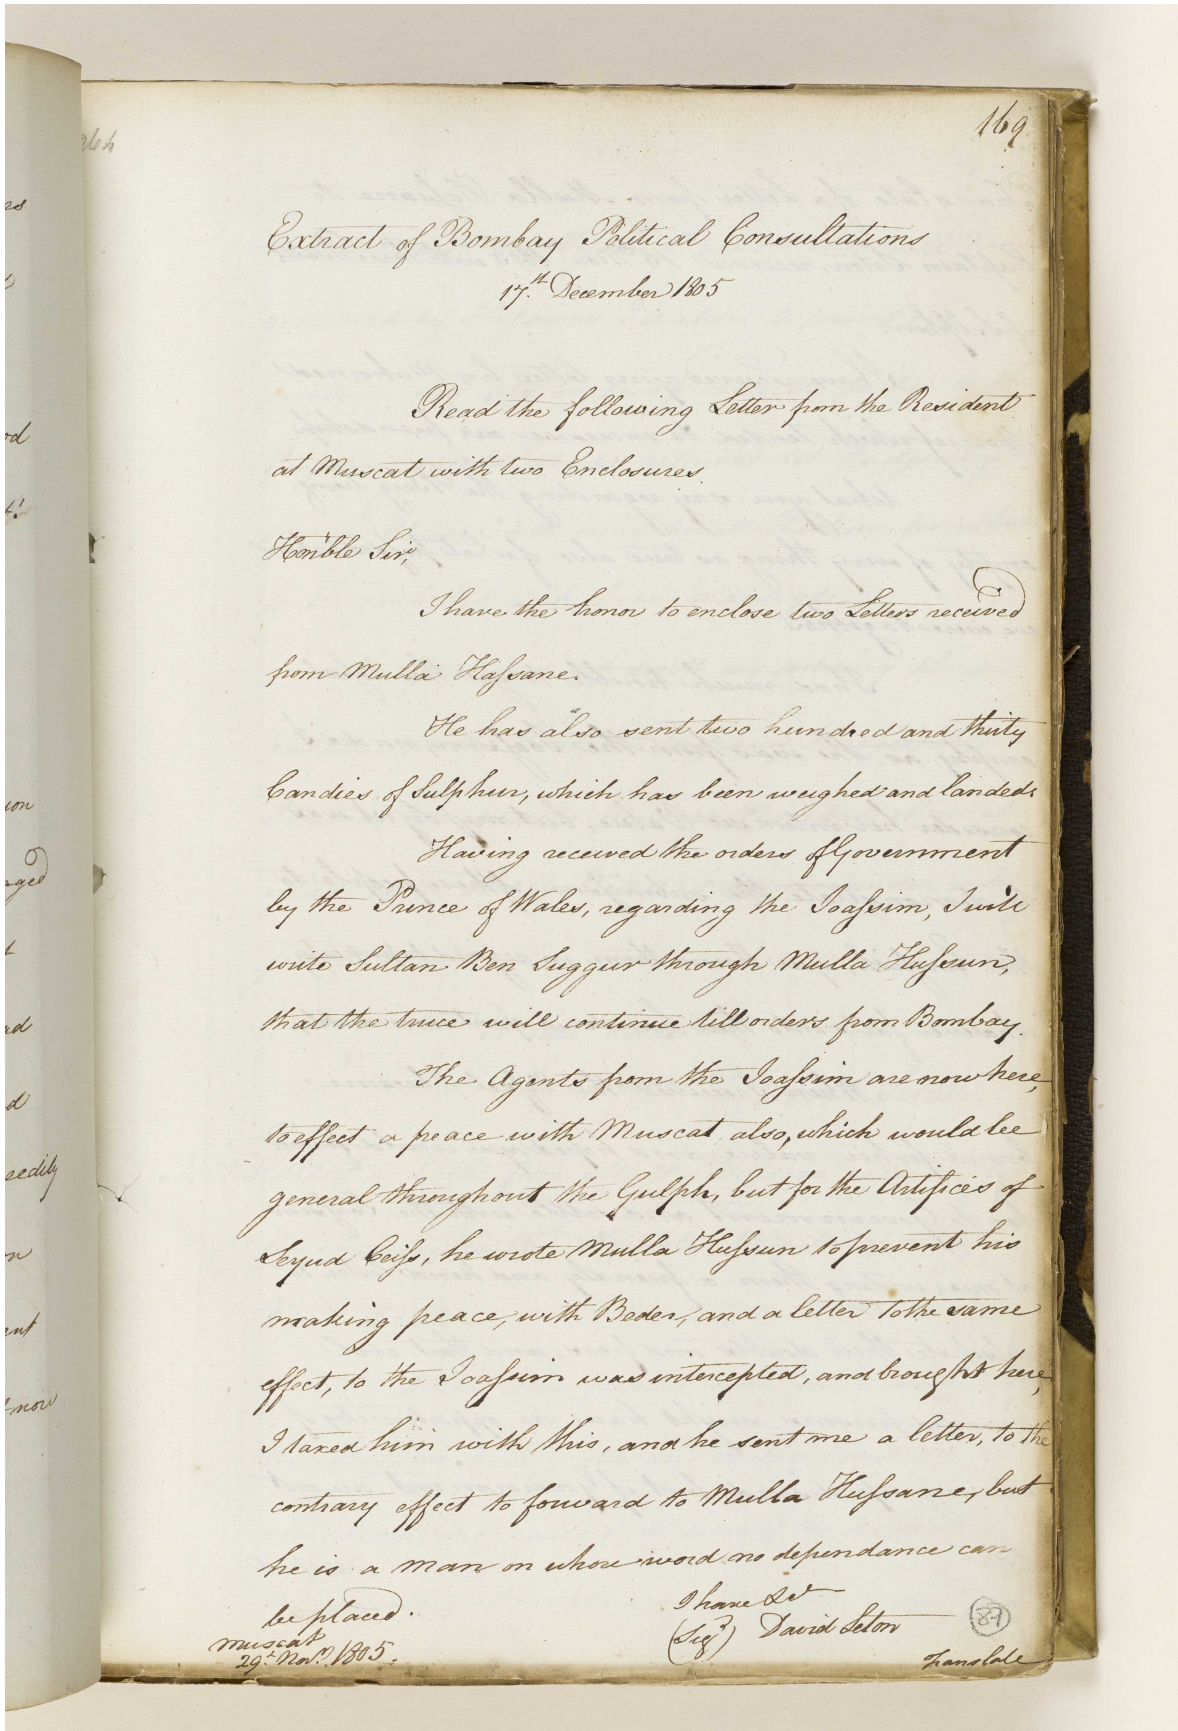 169
Extract of Bombay Political Consultations
17th December 1805
Read the following Letter from the Resident
at Muscat with two Enclosures.
Hon'ble Sir,
I have the honor to enclose two Letters received
from Mulla Haſsane.
He has also sent two hundred and thirty
Candies of Sulphur, which has been weighed and landed.
Having received the orders of Government
by the Prince of Wales, regarding the Joaſsim, I will
write Sultan Ben Suggur through Mulla Huſsun,
that the truce will continue till orders from Bombay.
The Agents from the Joaſsim are now here,
to effect a peace with Muscat also, which would be
general throughout the Gulph, but for the Artifices of
Seyud Ceiſs, he wrote Mulla Huſsun to prevent his
making peace, with Beder, and a letter to the same
effect, to the Joaſsim was intercepted, and brought here,
I taxed him with this, and he sent me a letter, to the
contrary effect to forward to Mulla Huſsane, but
he is a man on whose word no dependance can
be placed.
I have &ca
(Sigd) David Seton
Muscat
29th Novr. 1805.
87
Translate
ns
od
ion
aged
ad
d
eedily
on
ent
now